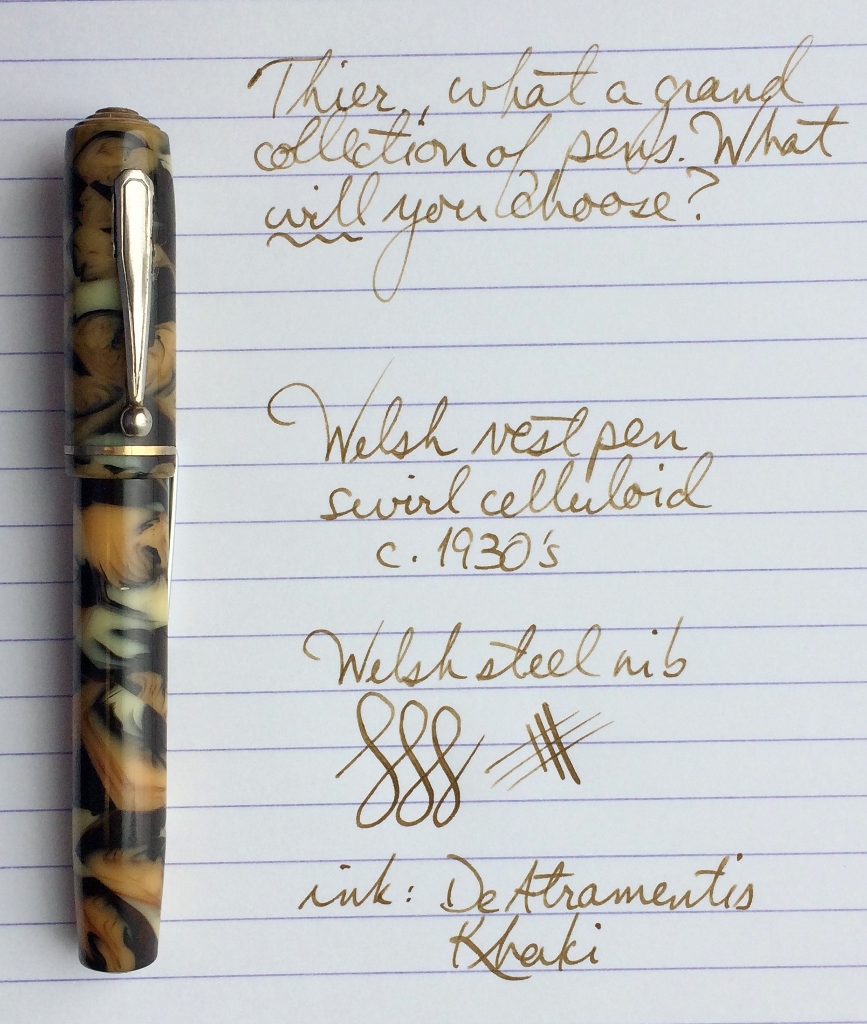 Thier, what a grand
collection of pens. What
will you choose?
Welsh vest pen
swirl celluloid
c. 1930's
Welsh steel nib
ink: De Atramentis
Khaki